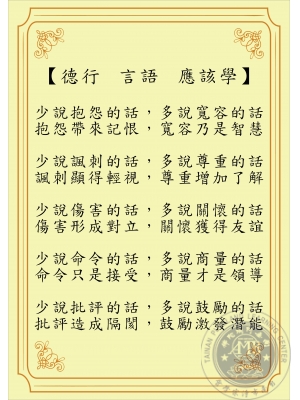 【德行 言語 應該學】
少說抱怨的話，多說寬容的話
抱怨帶來記恨，寬容乃是智慧
少說諷刺的話，多說尊重的話
諷刺顯得輕視，尊重增加了解
少說傷害的話，多說關懷的話
傷害形成對立，關懷獲得友誼
少說命令的話，多說商量的話
命令只是接受，商量才是領導
少說批評的話，多說鼓勵的話
批評造成隔閡，鼓勵激發潛能